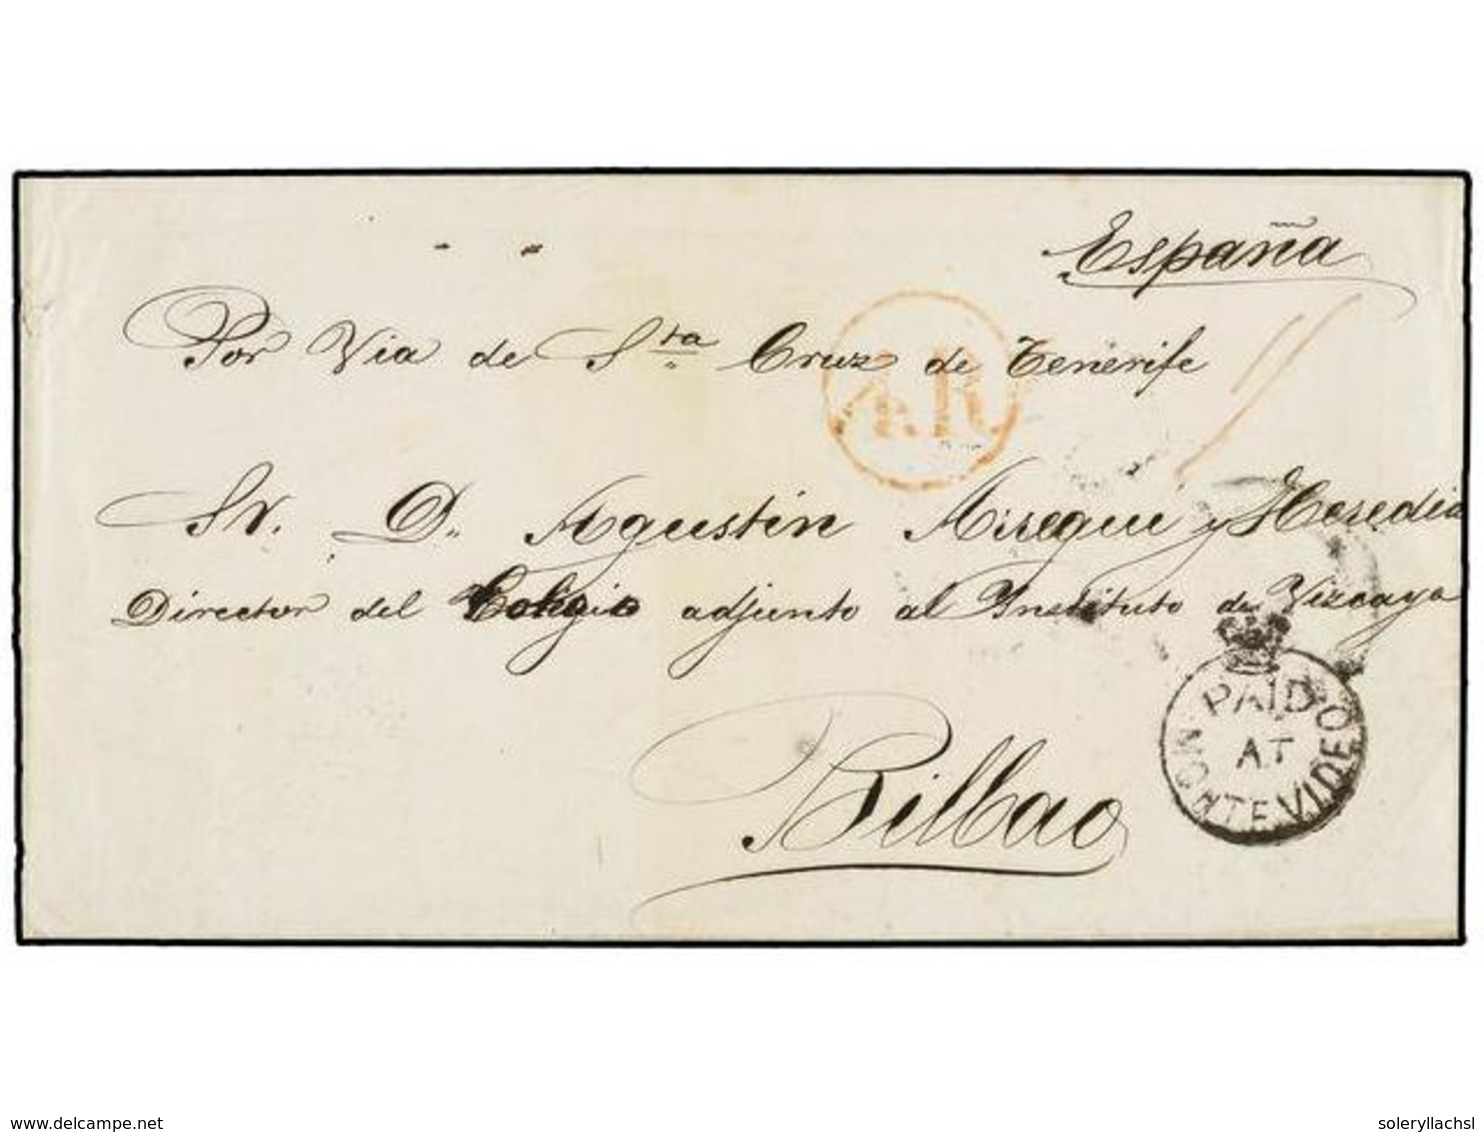 España
Por Via de Sta Cruz de Tenerife
4.R.
Sr. D. Agustin Arregui y Heredia
Director del Colegio adjunto al Instituto de Vizcaya
PAID
AT
MONTEVIDEO
Bilbao
delcampe.net
soleryllachsl